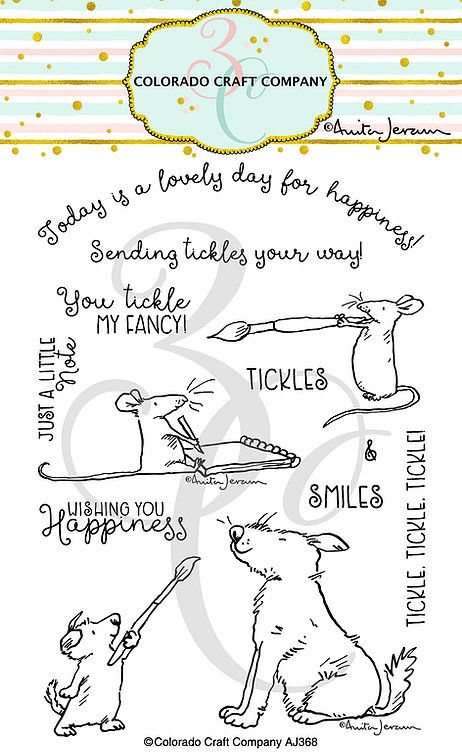 3C
COLORADO CRAFT COMPANY
©Anita Jeram
Today is a lovely day for happiness!
Sending tickles your way!
You tickle
MY FANCY!
JUST A LITTLE
Note
TICKLES
&
SMILES
©Anita Jeram
WISHING YOU
Happiness
TICKLE, TICKLE, TICKLE!
©Anita Jeram
©Colorado Craft Company AJ368